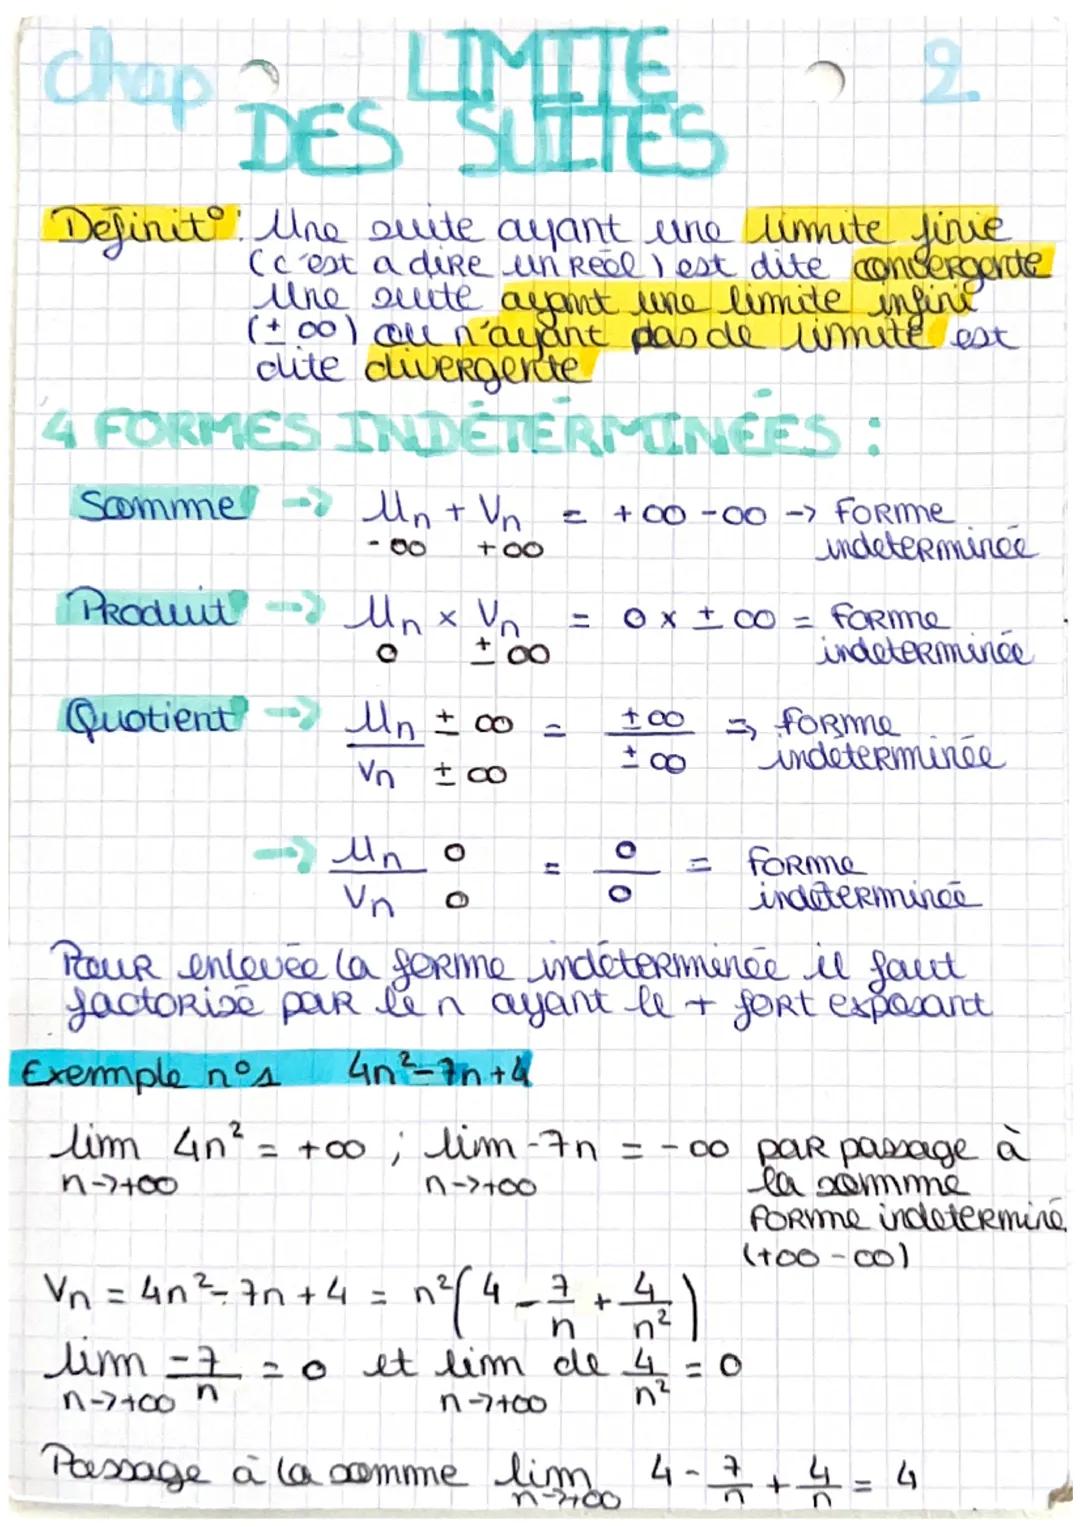 chap LIMITE 2
DES SUITES
Définit° : Une suite ayant une limite finie
(c'est a dire un Réel) est dite convergente
Une suite ayant une limite infini
(± ∞) ou n'ayant pas de limite est
dite divergente
4 FORMES INDÉTERMINÉES :
Somme → Un + Vn = +∞ -∞ → forme
-∞ +∞ indeterminée
Produit → Un × Vn = 0 × ± ∞ = forme
0 ± ∞ indeterminée
Quotient → Un ± ∞ = ±∞ ⇒ forme
Vn ± ∞ ± ∞ indeterminée
→ Un 0 = 0 = forme
Vn 0 0 indéterminée
Pour enlevée la forme indéterminée il faut
factorisé par le n ayant le + fort exposant
Exemple n°1 4n²-7n+4
lim 4n² = +∞ ; lim -7n = -∞ par passage à
n→+∞ n→+∞ la somme
forme indeterminé
(+∞ -∞)
Vn = 4n²-7n+4 = n²(4 - 7/n + 4/n²)
lim -7/n = 0 et lim de 4/n² = 0
n→+∞ n→+∞
Passage à la somme lim 4 - 7/n + 4/n = 4
n→+∞